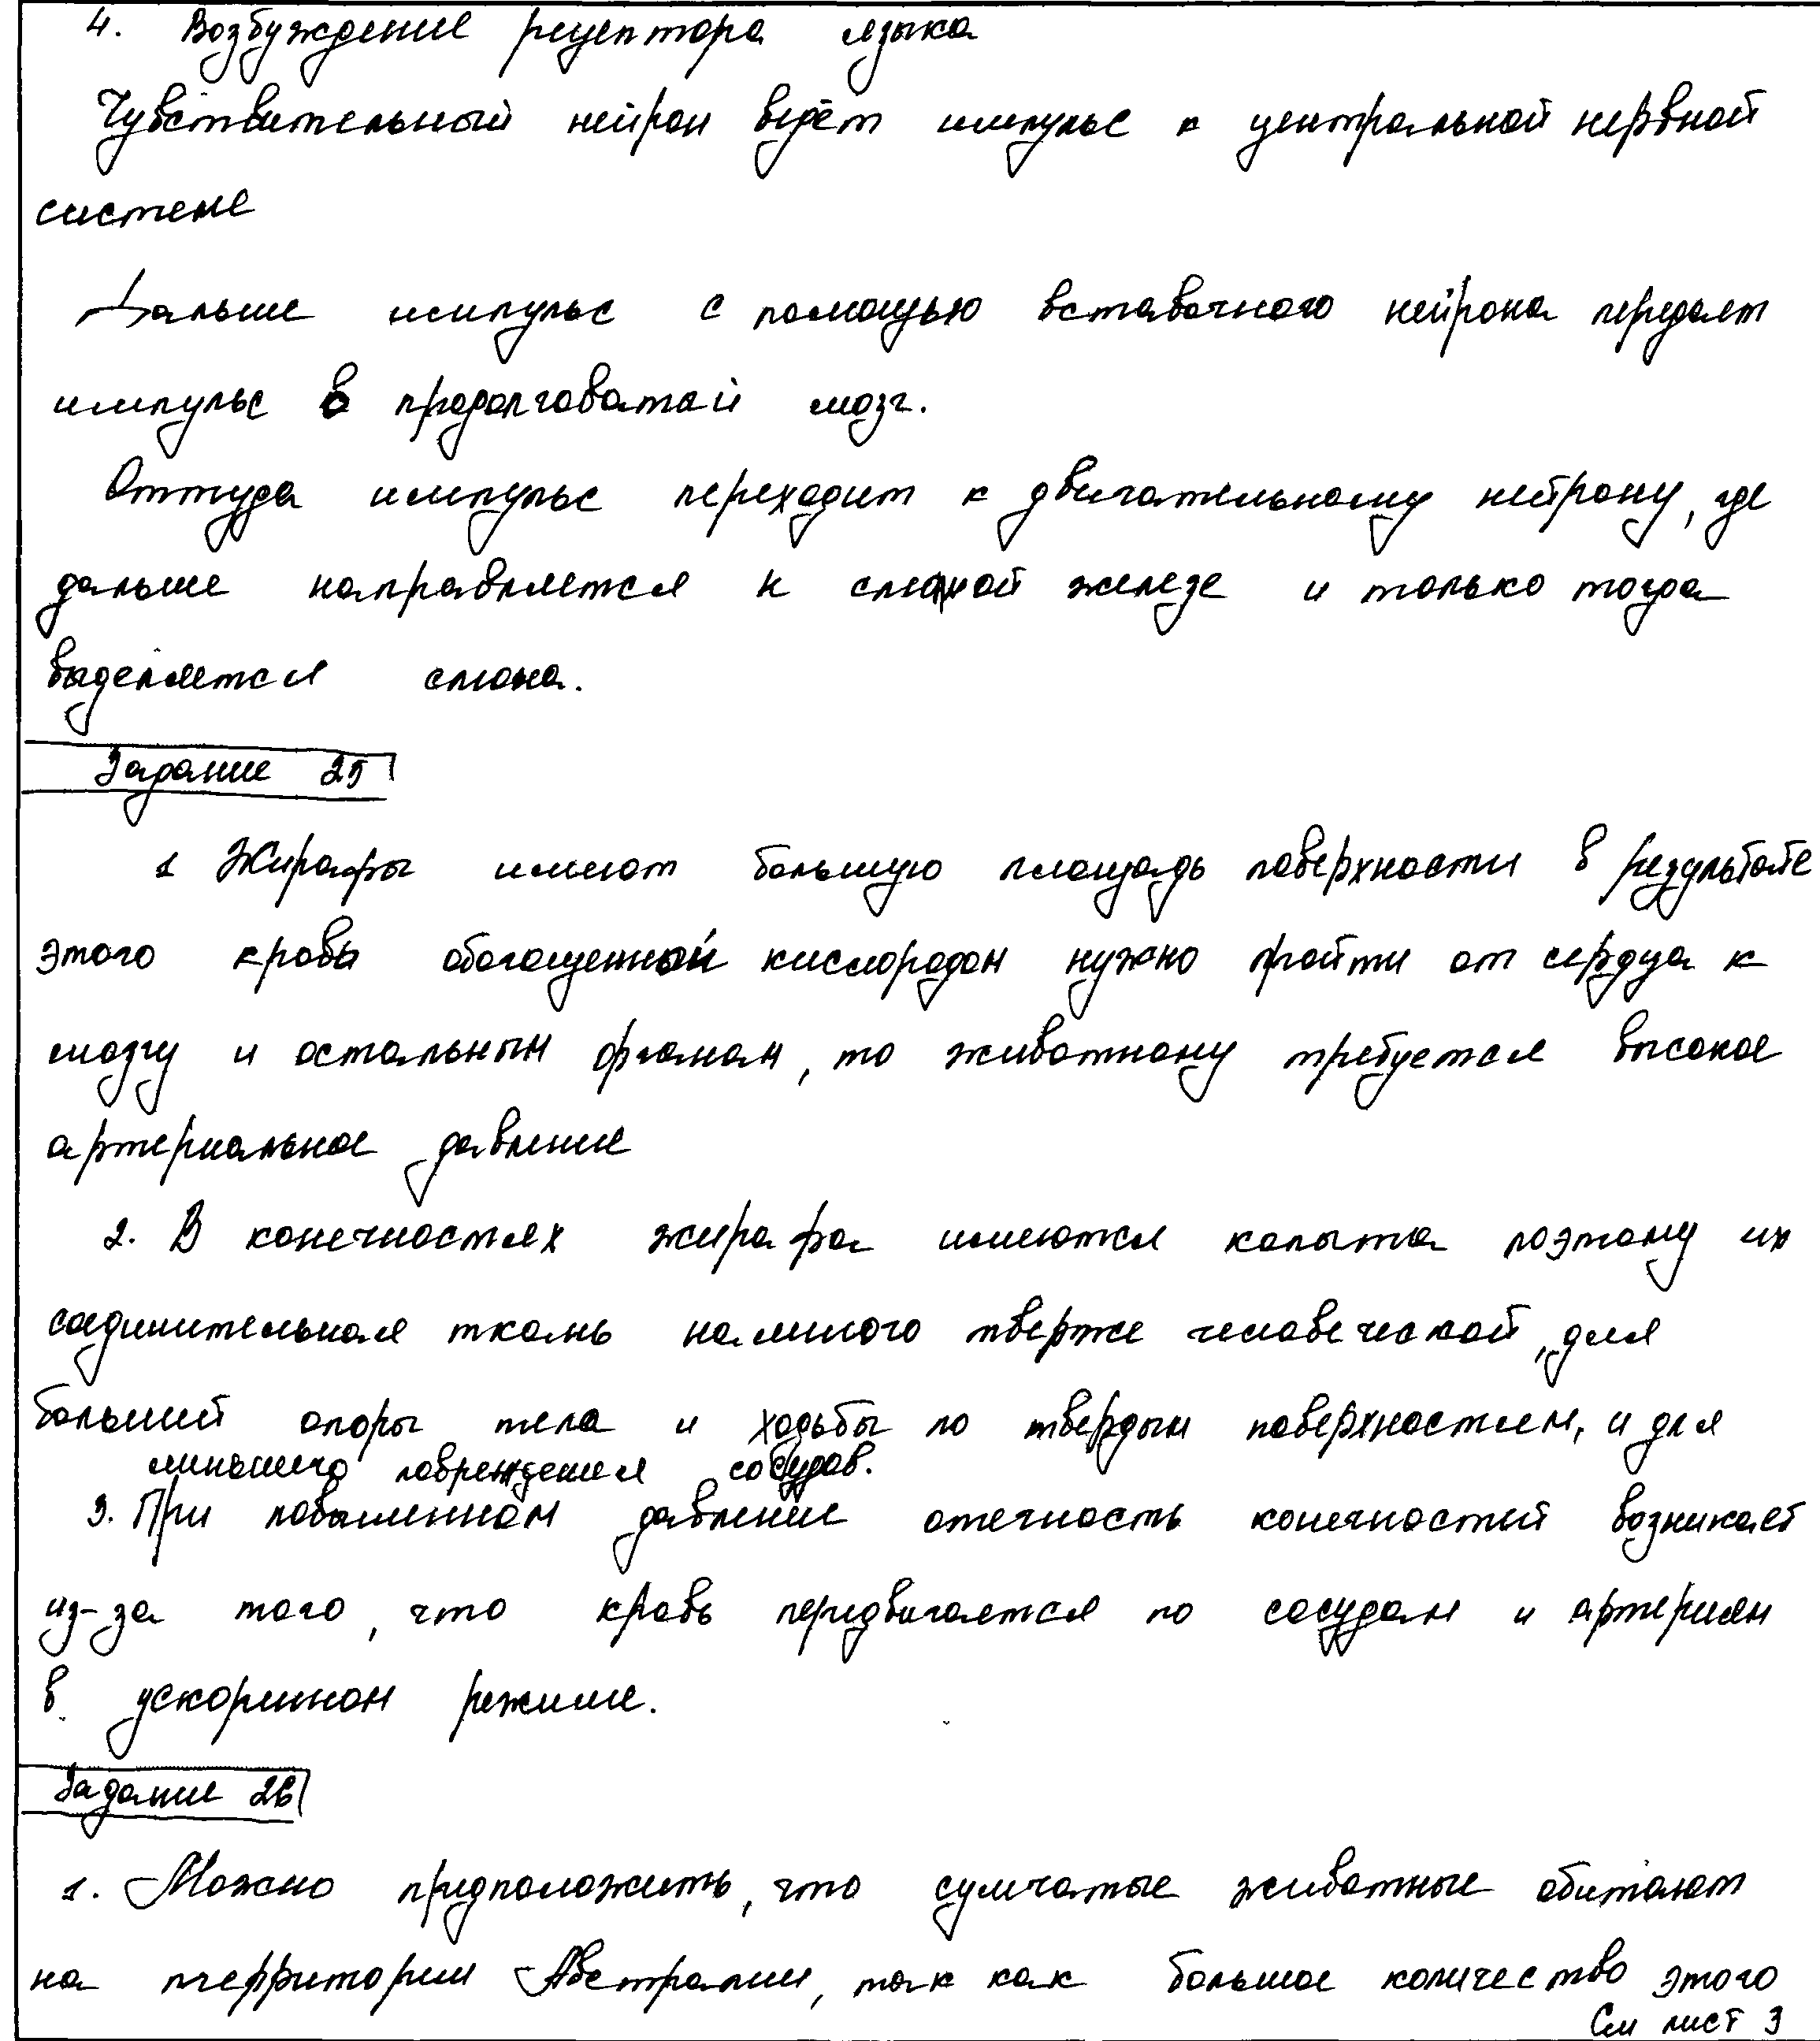 4. Возбуждение рецептора языка
Чувствительный нейрон ведёт импульс к центральной нервной
системе
Дальше импульс с помощью вставочного нейрона передает
импульс в продолговатый мозг.
Оттуда импульс переходит к двигательному нейрону, где
дальше направляется к слюной железе и только тогда
выделяется слюна.
Задание 25
1 Жирафы имеют большую площадь поверхности в результате
этого кровь обогащенной кислородом нужно пройти от сердца к
мозгу и остальным органам, то животному требуется высокое
артериальное давление
2. В конечностях жирафа имеются копыта поэтому их
соединительная ткань намного тверже человеческой, для
большей опоры тела и ходьбы по твердым поверхностям, и для
миньшего повреждения сосудов.
3. При повышенном давление отечность конечностей возникает
из-за того, что кровь передвигается по сосудам и артериям
в ускоренном режиме.
Задание 26
1. Можно предположить, что сумчатые животные обитают
на территории Австралии, так как большое количество этого
См лист 3